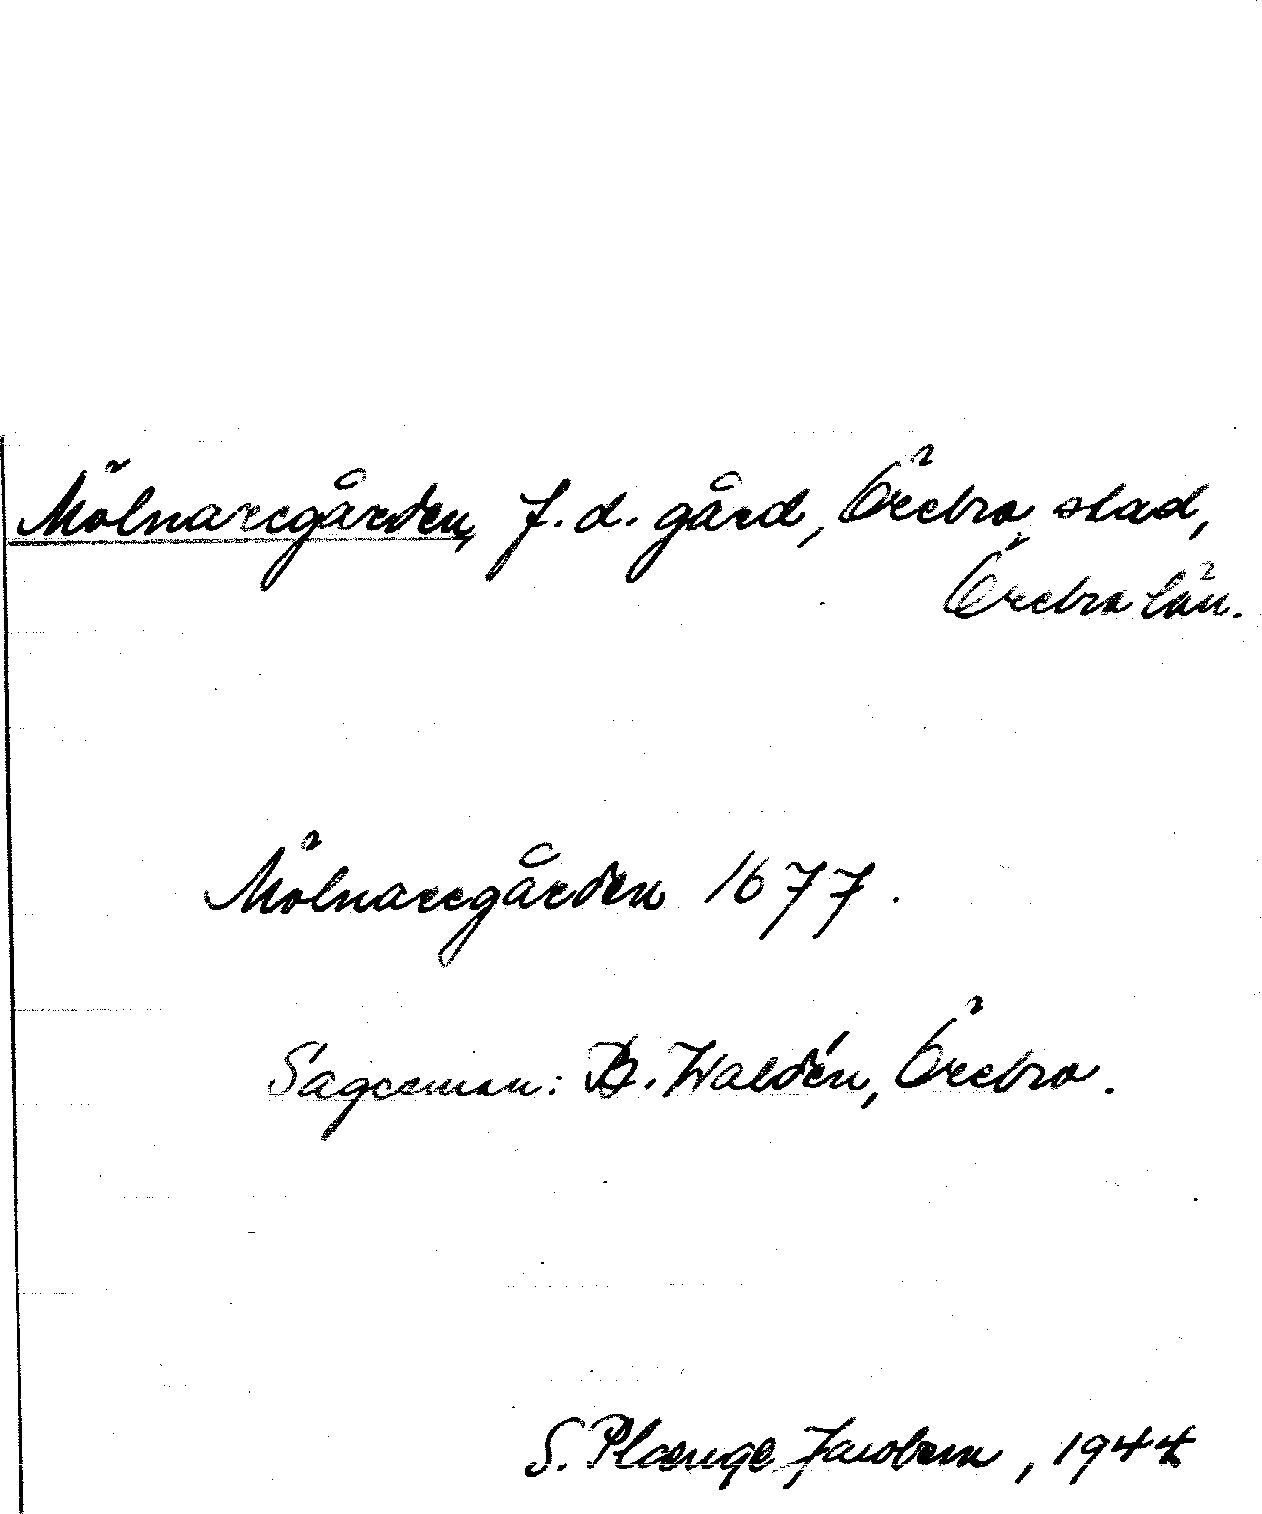 Mölnaregården, f. d. gård, Örebro stad,
Örebro län.
Mölnaregården 1677.
Sagesman: B. Waldén, Örebro.
S. Plænge Jacobson, 1944